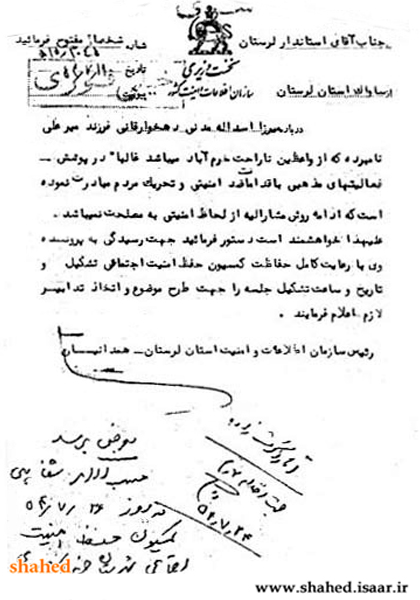 سری
جناب آقای استاندار لرستان
شخصا مفتوح فرمائید
شماره
نخست وزیری
تاریخ
سازمان اطلاعات و امنیت کشور
از ساواک استان لرستان
پیوست
درباره میرزا اسداله مدنی دهخوارقانی فرزند میرعلی
نامبرده که از واعظین ناراحت خرم آباد میباشد غالبا" در پوشش
فعالیتهای مذهبی باقدامات ضد امنیتی و تحریک مردم مبادرت نموده
است که ادامه روش مشارالیه از لحاظ امنیتی به مصلحت نمیباشد .
علیهذا خواهشمند است دستور فرمائید جهت رسیدگی به پرونده
وی با رعایت کامل حفاظت کمسیون حفظ امنیت اجتماعی تشکیل و
تاریخ و ساعت تشکیل جلسه را جهت طرح موضوع و اتخاذ تدابیر
لازم اعلام فرمایند .
رئیس سازمان اطلاعات و امنیت استان لرستان – همدانیان
بعرض برسد
حسب الامر شفاهی
در روز ۵۴/۷/۲۶
کمیسیون حفظ امنیت
اجتماعی
جهت اقدام
۵۴,۷,۲۴
shahed
www.shahed.isaar.ir